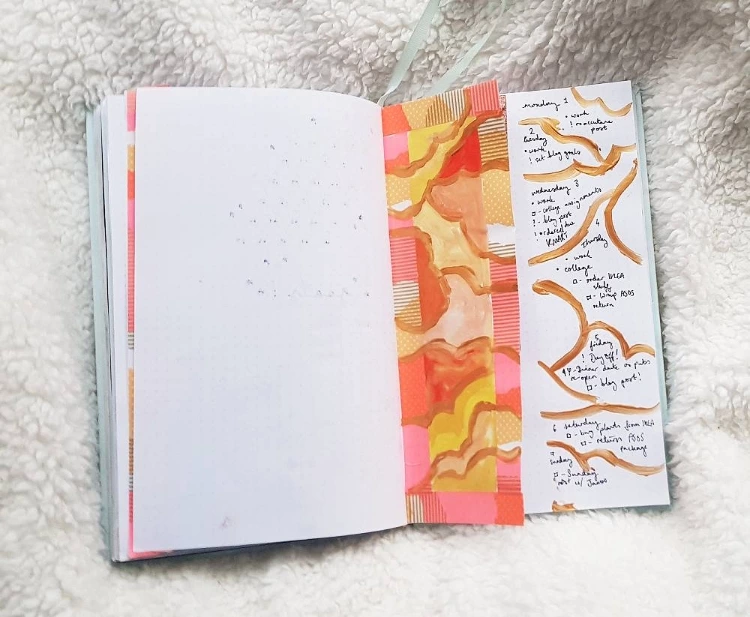 monday 1
• work
! manicure post
2
tuesday
• work
! set blog goals
wednesday 3
• work
college assignments
blog post
4
thursday
• work
• college
order IKEA
stuff
ASOS
return
5
friday
! Day off!
dinner date as pubs
re-open
blog post!
6 saturday
buy plants from IKEA
return ASOS
package
7
sunday
Sunday
roast w/ James